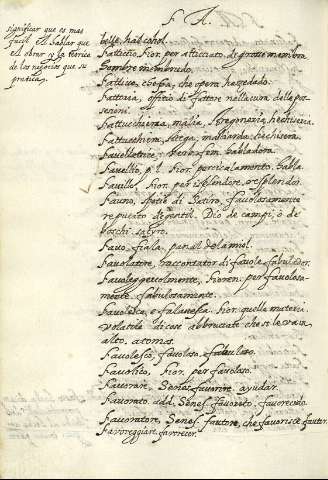 F A.
significar que es mas
facil el hablar que
el obrar y la teorica
de los negocios que su
pratica.
Fatticcio, Fior. per atticciato, di grosse membra
hombre membrudo.
Fattiva, cosa, che opera
Fattoria, offitio di fattore nella cura delle pos-
sessioni.
Fattucchieria, malia, stregoneria, hechiseria
Fattucchiera, strega, maliarda, hechisera.
Favellatrice, verb. fem. habladora.
Favellio, p. l. Fior. per cicalamento. habla
Faville, Fior. per isplendore, resplendor.
Fauno, spetie di Satiro, favolosamente
reputato da gentil. Dio de campi, ò de
boschi satyro.
Favo, fiala, panal de la miel.
Favolatore, raccontator di favole, fabulador.
Favoleggevolmente, Fioren. per favolosa-
mente. fabulosamente.
Favolesca, e falavesca. Fior. quella materia
volatile di cose abbruciate che se le va in
alto, atomos.
Favolesco, favoloso, fabuloso.
Favolito, Fior. per favoloso.
Favorare, Senes. favorire, ayudar.
Favorato, add. Senes. favorito, favorecido.
Favoratore, Senes. fautore, che favorisce, fautor.
Favoreggiare, favorecer.